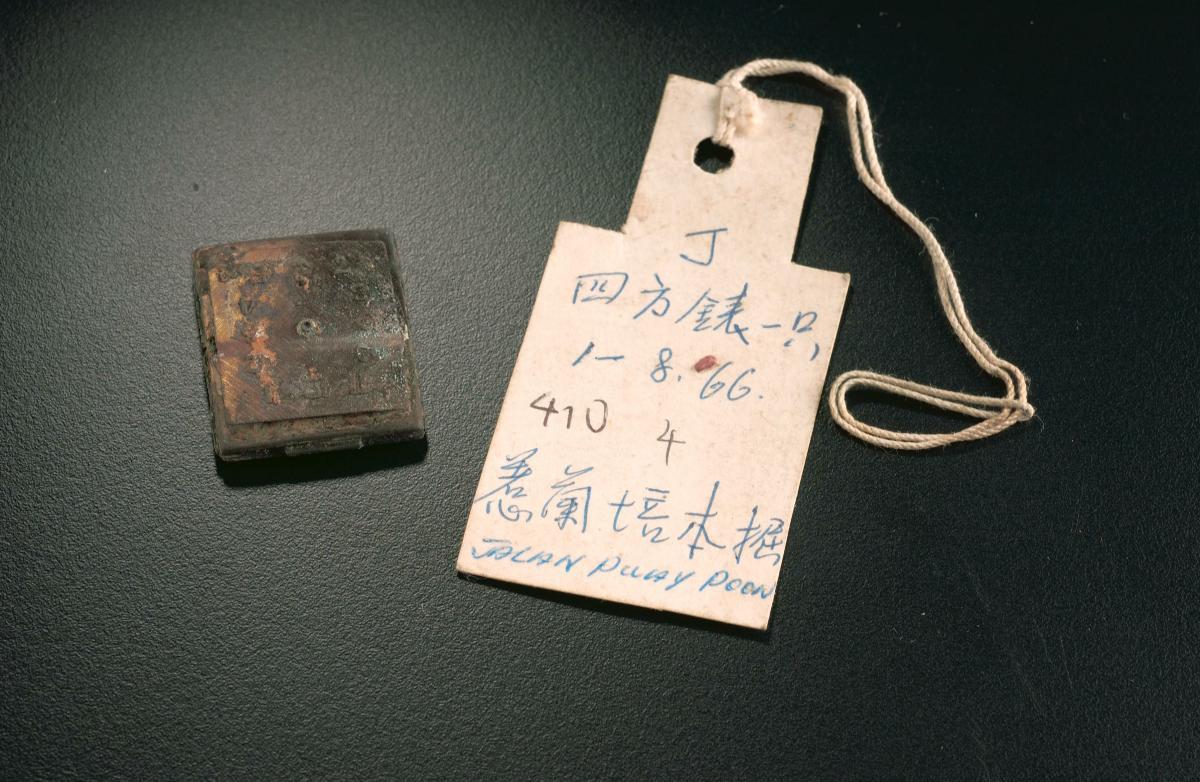 丁
四方錶一只
1-8.66.
410 4
惹蘭培本掘
JALAN PUAY POON